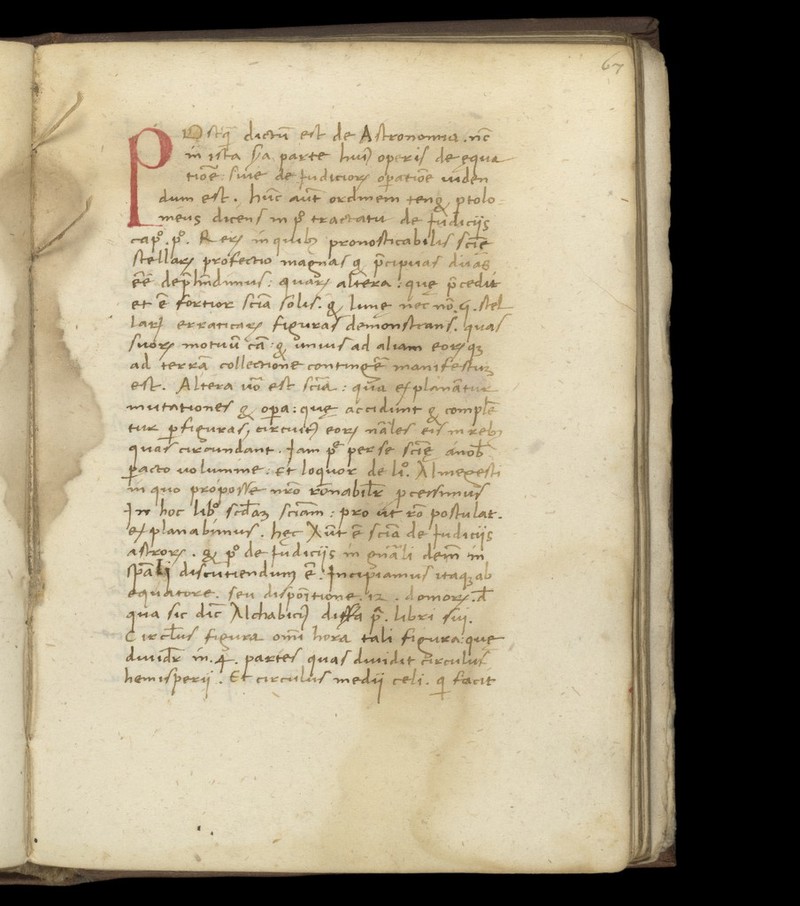 67
POstq̄ dictū est de Astronomia. nc̄
in ista s̄a parte huiꝰ operis de equa
tiōe siue de Iudicioꝝ oꝑatiōe uiden
dum est. hūc aūt ordinem tenꝫ ptolo-
meus dicens in pº tractatu de Iudiciis
capº. pº. Reꝝ in quibꝫ pronosticabilis sciē
stellaꝝ profectio magnas & p̄cipuas duas
eē̄ dep̄hndimus: quaꝝ altera: que p̄cedit
et ē fortior scīa solis. & lune nec nō. 
laꝝ erraticaꝝ figuras demonstrans. quas
suoꝝ motuū cā: & unius ad aliam eoꝝqꝫ
ad terrā collectione contingē manifestuꝫ
est. Altera uō est scīa: qua explanātur
mutationes & oꝑa: quę accidunt & complē
tur ꝑ figuras, circuitꝰ eoꝝ nāles eis in rebꝫ
quas circundant. Iam pº per se sciē
ꝑacto volumine: Et loquor de liº. Almegesti
in quo proposse nrō rōnabilr̄ pcessimus
In hoc libº scd̄aꝫ sciam: pro ut rō postulat.
explanabimus. hęc  ē scīa de Iudiciis
astroꝝ. & pº de Iudiciis in gnāli dem̄ in
sp̄āli discutiendum ē: Incipiamus itaqꝫ ab
equatore. seu dispōitione .12. domoꝝ. d̄
qua sic dic̄ Alchabiciꝰ diffa p̄. libri sui.
Circl̄us figura omī hora tali figura: que
diuidr̄ in .4. partes quas diuidit circulus
hemisperij. Et circulus medii celi. q̄ facit